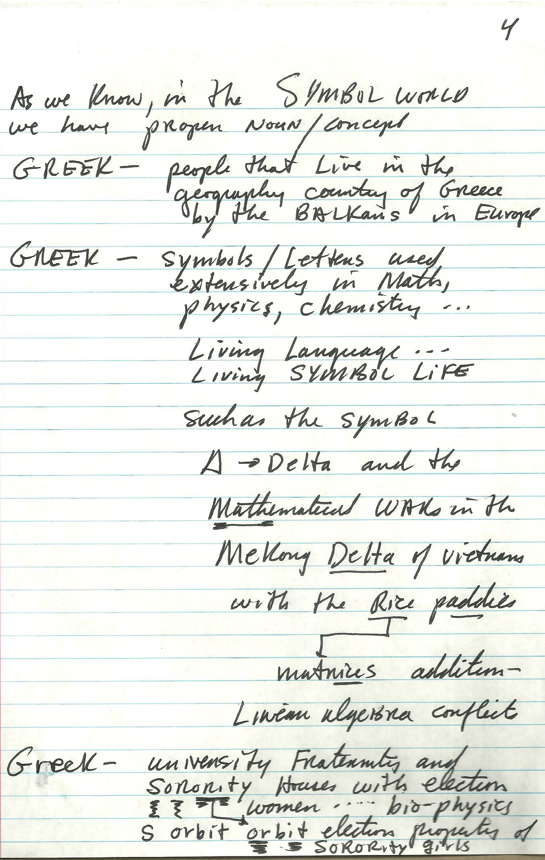 4
As we Know, in the SYMBOL WORLD
we have proper NOUN/concept
GREEK — people that Live in the
geography country of Greece
by the BALKANS in Europe
GREEK — symbols/Letters used
extensively in Math,
physics, chemistry ...
Living Language ...
Living SYMBOL LIFE
such as the SYMBOL
Δ → Delta and the
Mathematical WARs in th
Mekong Delta of vietnam
with the Rice paddies
matrices addition—
Linear algebra conflict
Greek — university Fraternity and
SORORITY Houses with election
women ..... bio-physics
S orbit orbit election property of
SORORITY girls